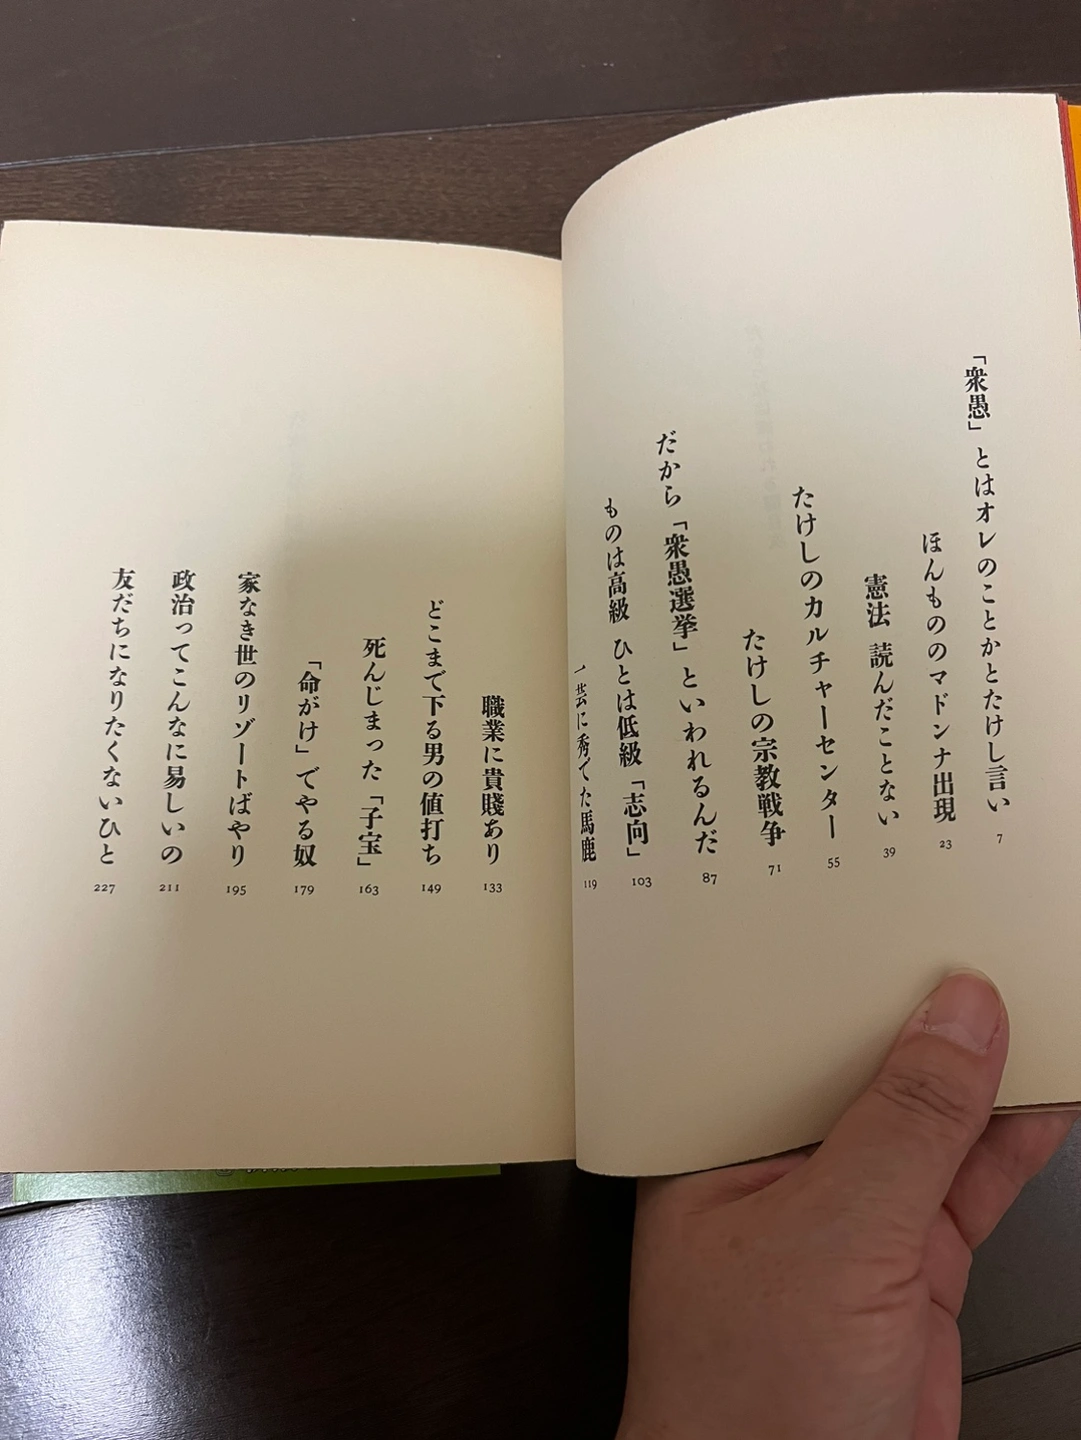 「衆愚」とはオレのことかとたけし言い 7
ほんもののマドンナ出現 23
憲法 読んだことない 39
たけしのカルチャーセンター 55
たけしの宗教戦争 71
だから「衆愚選挙」といわれるんだ 87
ものは高級 ひとは低級「志向」 103
一芸に秀でた馬鹿 119
職業に貴賤あり 133
どこまで下る男の値打ち 149
死んじまった「子宝」 163
「命がけ」でやる奴 179
家なき世のリゾートばやり 195
政治ってこんなに易しいの 211
友だちになりたくないひと 227